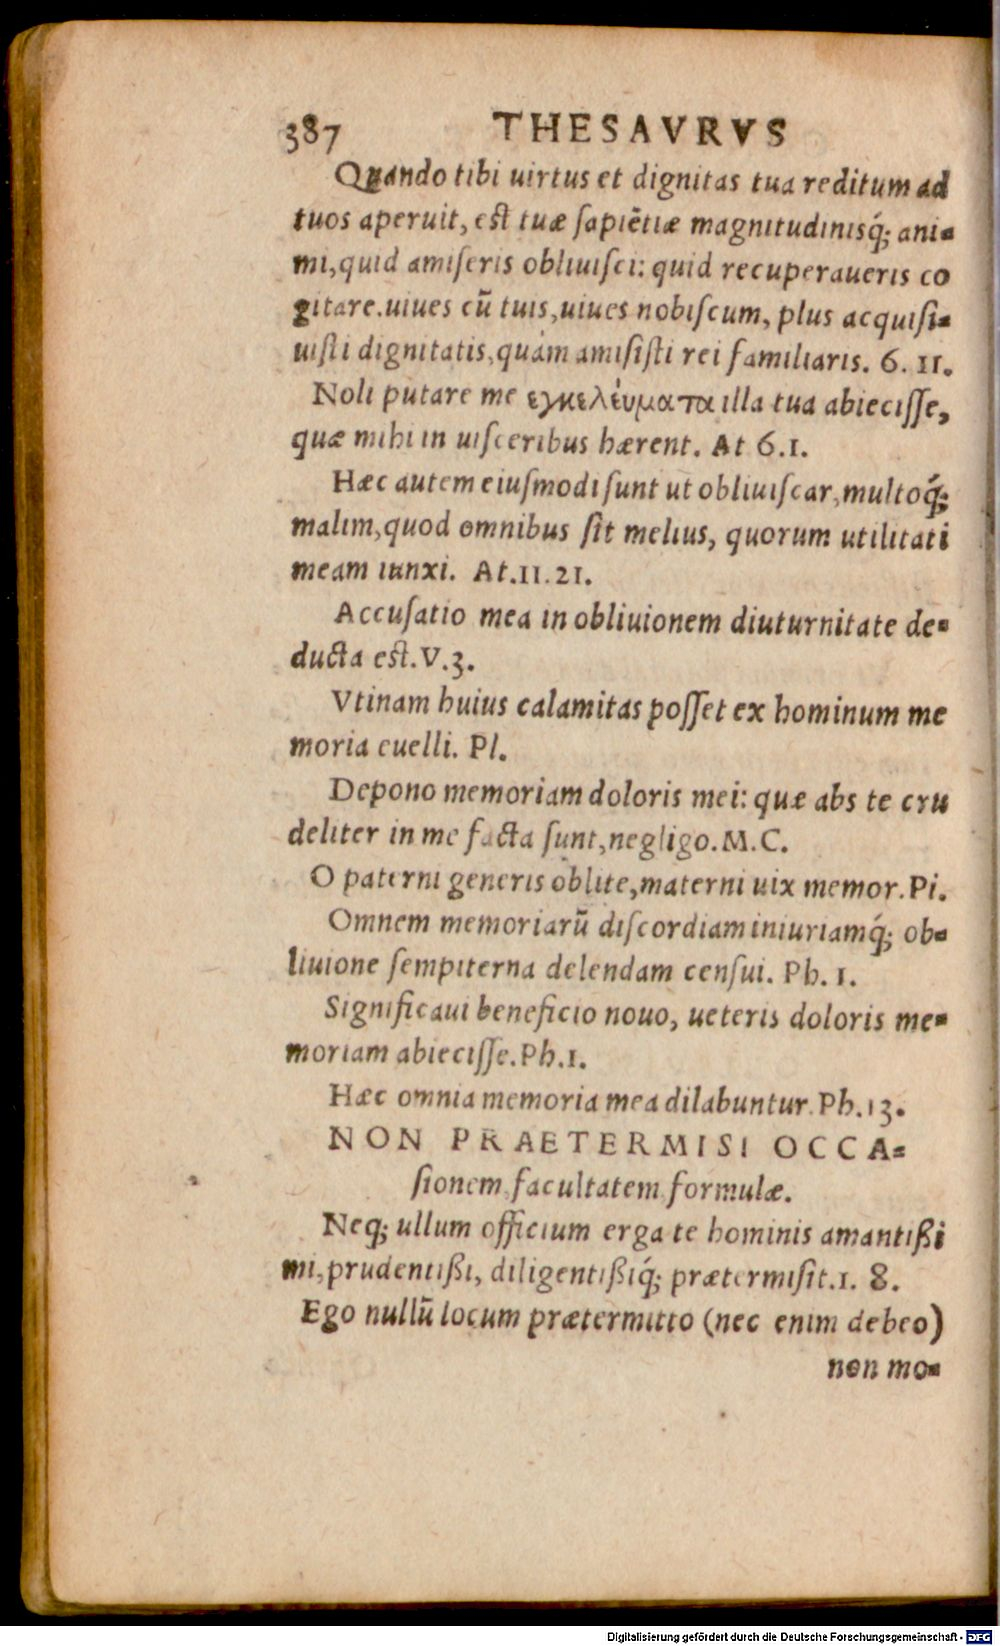 387 THESAVRVS
Quando tibi uirtus et dignitas tua reditum ad
tuos aperuit, est tuæ ſapiẽtiæ magnitudinisq́; ani-
mi,quid amiſeris obliuiſci: quid recuperaueris co
gitare.uiues cũ tuis,uiues nobiſcum, plus acquiſi-
uiſti dignitatis,quàm amiſiſti rei familiaris. 6. 11.
Noli putare me εγκελέυματα illa tua abieciſſe,
quæ mihi in uiſceribus hærent. At 6.1.
Hæc autem eiuſmodi ſunt ut obliuiſcar,multoq́;
malim,quod omnibus ſit melius, quorum utilitati
meam iunxi. At.11.21.
Accuſatio mea in obliuionem diuturnitate de-
ducta est.V.3.
Vtinam huius calamitas poſſet ex hominum me
moria euelli. Pl.
Depono memoriam doloris mei: quæ abs te cru
deliter in me facta ſunt,negligo.M.C.
O paterni generis oblite,materni uix memor.Pi.
Omnem memoriarũ diſcordiam iniuriamq́; ob-
liuione ſempiterna delendam cenſui. Ph. 1.
Significaui beneficio nouo, ueteris doloris me-
moriam abieciſſe.Ph.1.
Hæc omnia memoria mea dilabuntur.Ph.13.
NON PRAETERMISI OCCA-
ſionem,facultatem formulæ.
Neq; ullum officium erga te hominis amantißi
mi,prudentißi, diligentißiq́; prætermiſit.1. 8.
Ego nullũ locum prætermitto (nec enim debeo)
non mo-
Digitalisierung gefördert durch die Deutsche Forschungsgemeinschaft - DFG